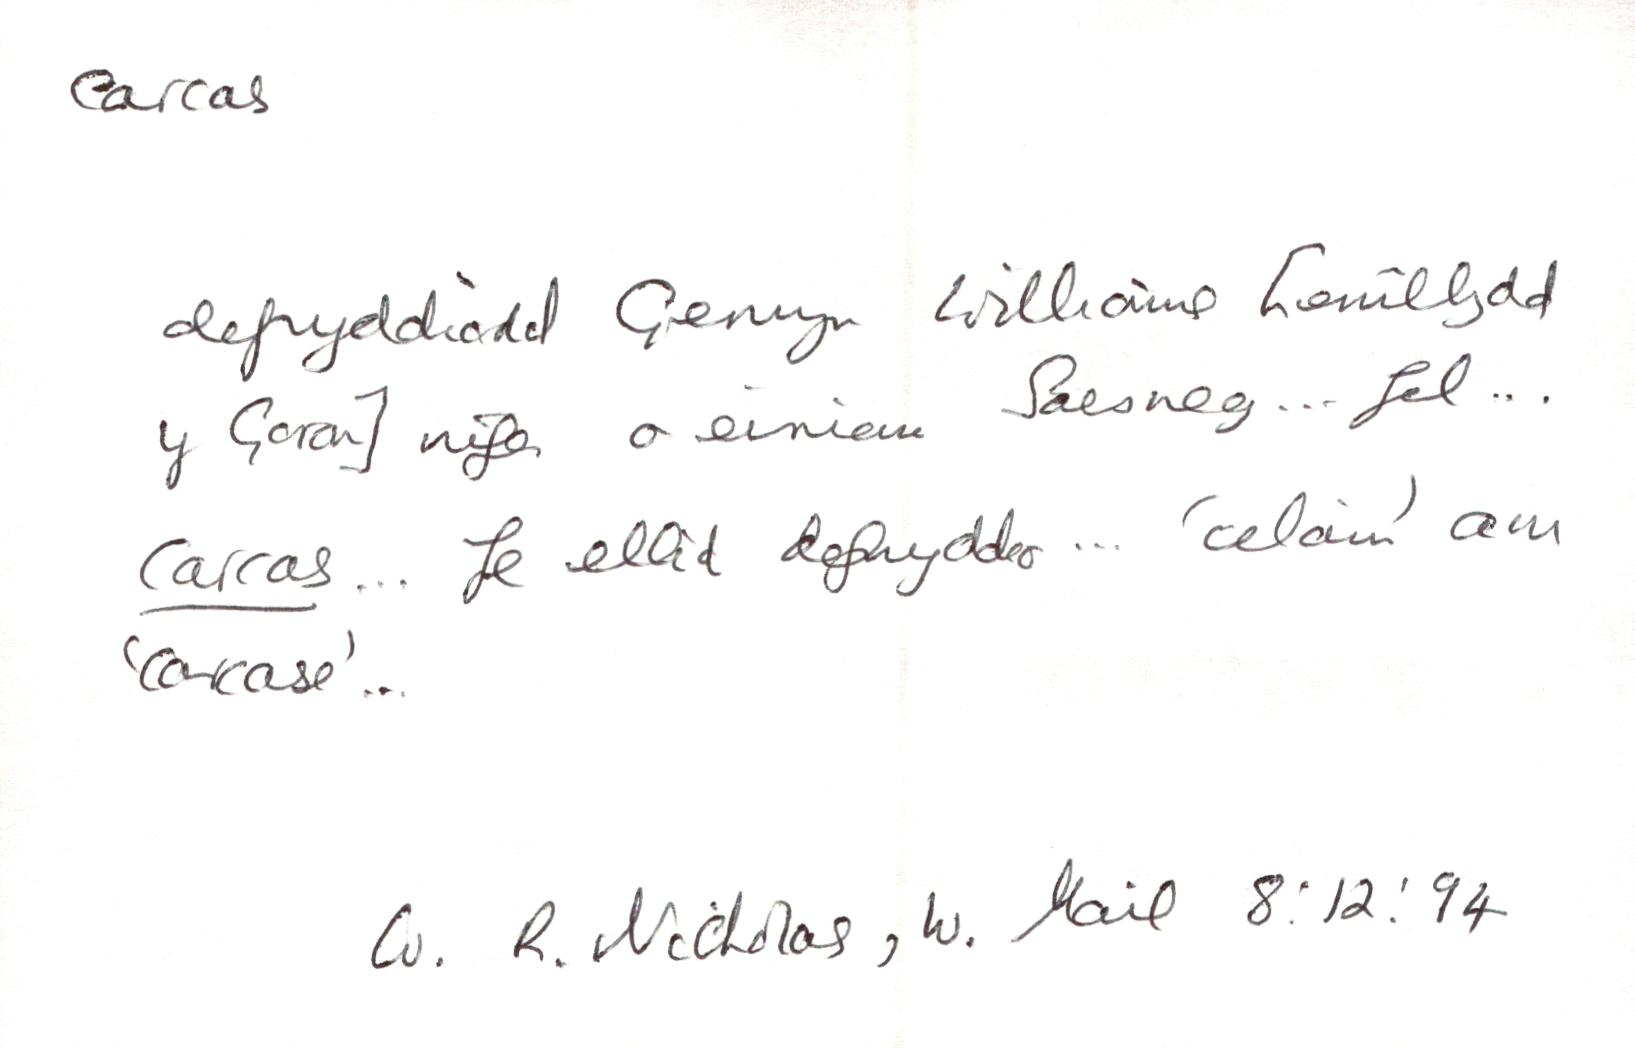 Carcas
defnyddiodd Gerwyn Williams [enillydd
y Goron] nifer o eiriau Saesneg... fel...
carcas... Fe ellid defnyddio... 'celain' am
'carcase'...
W. R. Nicholas, W. Mail 8:12:94